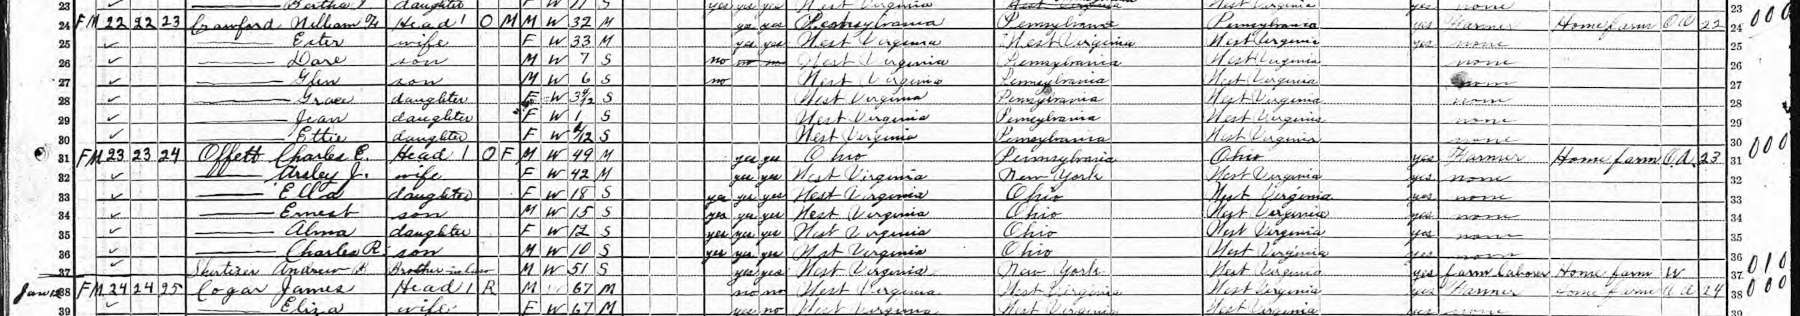 23 Bertha daughter F W 11 S yes yes yes West Virginia West Virginia West Virginia yes none 23
24 F M 22 22 23 Crawford William Head 1 O M M W 32 M yes yes Pennsylvania Pennsylvania Pennsylvania yes Farmer Home farm O A 22 24 0 0 0
25 Ester wife F W 33 M yes yes West Virginia West Virginia West Virginia yes none 25
26 Dare son M W 7 S no no no West Virginia Pennsylvania West Virginia none 26
27 Glen son M W 6 S no West Virginia Pennsylvania West Virginia none 27
28 Grace daughter F W 3 S West Virginia Pennsylvania West Virginia none 28
29 Jean daughter F W 1 S West Virginia Pennsylvania West Virginia none 29
30 Ettie daughter F W S West Virginia Pennsylvania West Virginia none 30
31 F M 23 23 24 Offett Charles E. Head 1 O F M W 49 M yes yes Ohio Pennsylvania Ohio yes Farmer Home farm O A. 23 31 0 0 0
32 Arsley J. wife F W 42 M yes yes West Virginia New York West Virginia yes none 32
33 Ella daughter F W 18 S yes yes yes West Virginia Ohio West Virginia yes none 33
34 Ernest son M W 15 S yes yes yes West Virginia Ohio West Virginia yes none 34
35 Alma daughter F W 12 S yes yes yes West Virginia Ohio West Virginia yes none 35
36 Charles R. son M W 10 S yes yes yes West Virginia Ohio West Virginia yes none 36
37 Andrew Brother in law M W 51 S yes yes West Virginia New York West Virginia yes farm laborer Home farm W 37 0 1 0
38 F M 24 24 25 Cogar James Head 1 R M W 67 M no no West Virginia West Virginia West Virginia yes Farmer Home farm O A 24 38 0 0 0
39 Eliza wife F W 67 M yes no West Virginia West Virginia West Virginia yes none 39